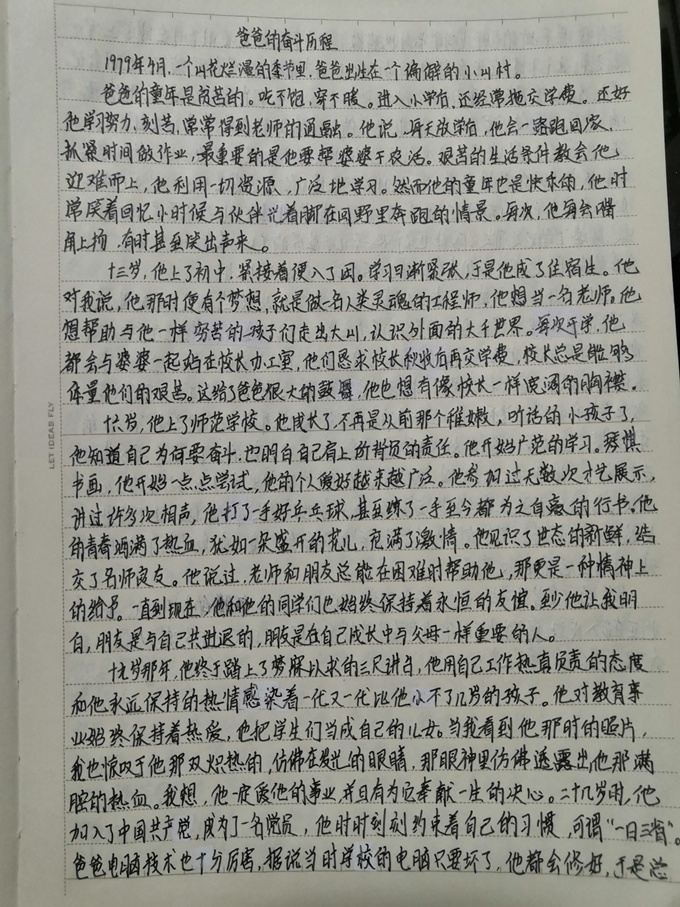 爸爸的奋斗历程
1979年4月,一个山花烂漫的季节里,爸爸出生在一个偏僻的小山村。
爸爸的童年是贫苦的。吃不饱,穿不暖。进入小学后,还经常拖欠学费。还好
他学习努力、刻苦,常常得到老师的通融。他说,每天放学后,他会一路跑回家,
抓紧时间做作业,最重要的是他要帮婆婆干农活。艰苦的生活条件教会他
迎难而上,他利用一切资源,广泛地学习。然而他的童年也是快乐的,他时
常笑着回忆小时候与伙伴光着脚在田野里奔跑的情景。每次,他都会嘴
角上扬,有时甚至笑出声来。
十三岁,他上了初中,紧接着便入了团。学习日渐紧张,于是他成了住宿生。他
对我说,他那时便有个梦想,就是做一名人类灵魂的工程师,他想当一名老师。他
想帮助与他一样穷苦的孩子们走出大山,认识外面的大千世界。每次开学,他
都会与婆婆一起站在校长办工室,他们恳求校长秋收后再交学费,校长总是能够
体量他们的艰苦。这给了爸爸很大的鼓舞,他也想有像校长一样宽阔的胸襟。
十六岁,他上了师范学校。他成长了,不再是从前那个稚嫩,听话的小孩子了,
他知道自己为何要奋斗,也明白自己肩上所背负的责任。他开始广范的学习。琴棋
书画,他开始一点点尝试,他的个人爱好越来越广泛。他参加过无数次才艺展示,
讲过许多次相声,他打了一手好乒乓球,甚至练了一手至今都为之自豪的行书。他
的青春洒满了热血,犹如一朵盛开的花儿,充满了激情。他见识了世态的新鲜,结
交了名师良友。他说过,老师和朋友总能在困难时帮助他,那更是一种精神上
的给予。一直到现在,他和他的同学们也始终保持着永恒的友谊。至少他让我明
白,朋友是与自己共进退的,朋友是在自己成长中与父母一样重要的人。
十九岁那年,他终于踏上了梦寐以求的三尺讲台,他用自己工作热真负责的态度
和他永远保持的热情感染着一代又一代比他小不了几岁的孩子。他对教育事
业始终保持着热爱,也把学生们当成自己的儿女。当我看到他那时的照片,
我也惊叹于他那双炽热的,仿佛在发光的眼睛,那眼神里仿佛透露出他那满
腔的热血。我想,他一定爱他的事业,并且有为它奉献一生的决心。二十几岁时,他
加入了中国共产党,成为了一名党员,他时时刻刻约束着自己的习惯,可谓"一日三省"。
爸爸电脑技术也十分厉害,据说当时学校的电脑只要坏了,他都会修好,于是总
LET IDEAS FLY